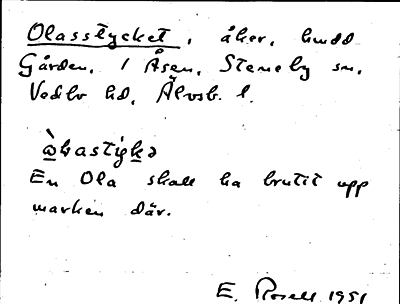 Olasstycket, åker, hmdd
Gården, 1 Åsen, Steneby sn,
Vedbo hd, Älvsb. l.
En Ola skall ha brutit upp
marken där.
E. Rosell 1951